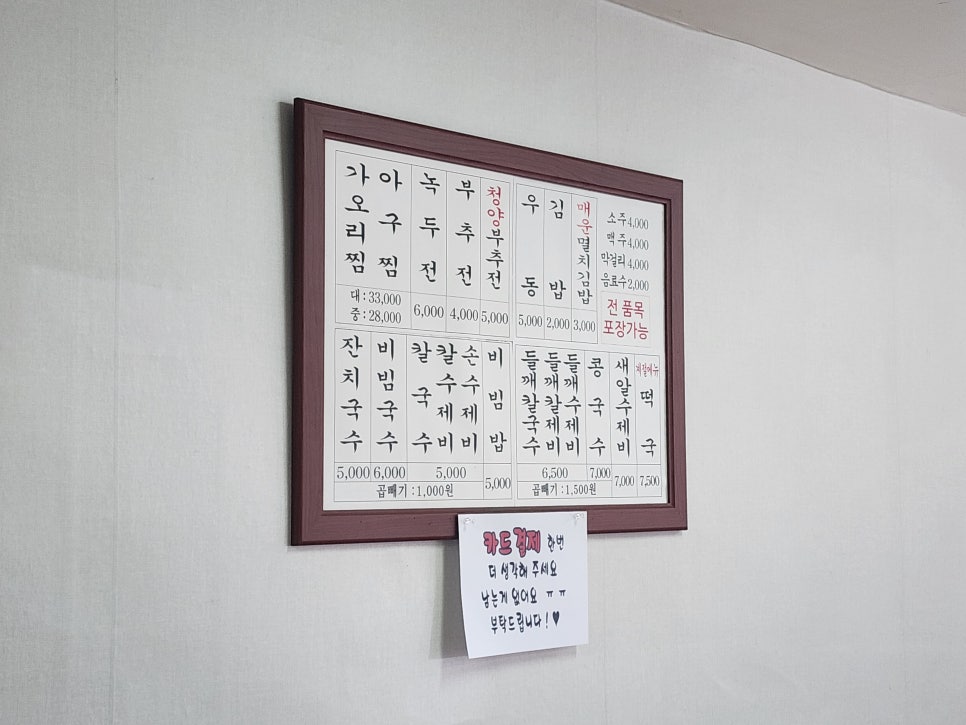 가오리찜
아구찜
대 : 33,000
중 : 28,000
녹두전
6,000
부추전
4,000
청양부추전
5,000
우동
5,000
김밥
2,000
매운멸치김밥
3,000
소주 4,000
맥주 4,000
막걸리 4,000
음료수 2,000
전 품목
포장가능
잔치국수
5,000
비빔국수
6,000
칼국수
칼수제비
손수제비
5,000
곱빼기 : 1,000원
비빔밥
5,000
들깨칼국수
들깨칼제비
들깨수제비
6,500
콩국수
7,000
곱빼기 : 1,500원
새알수제비
7,000
계절메뉴
떡국
7,500
카드결제 한번
더 생각해 주세요
남는게 없어요 ㅠㅠ
부탁드립니다! ♥